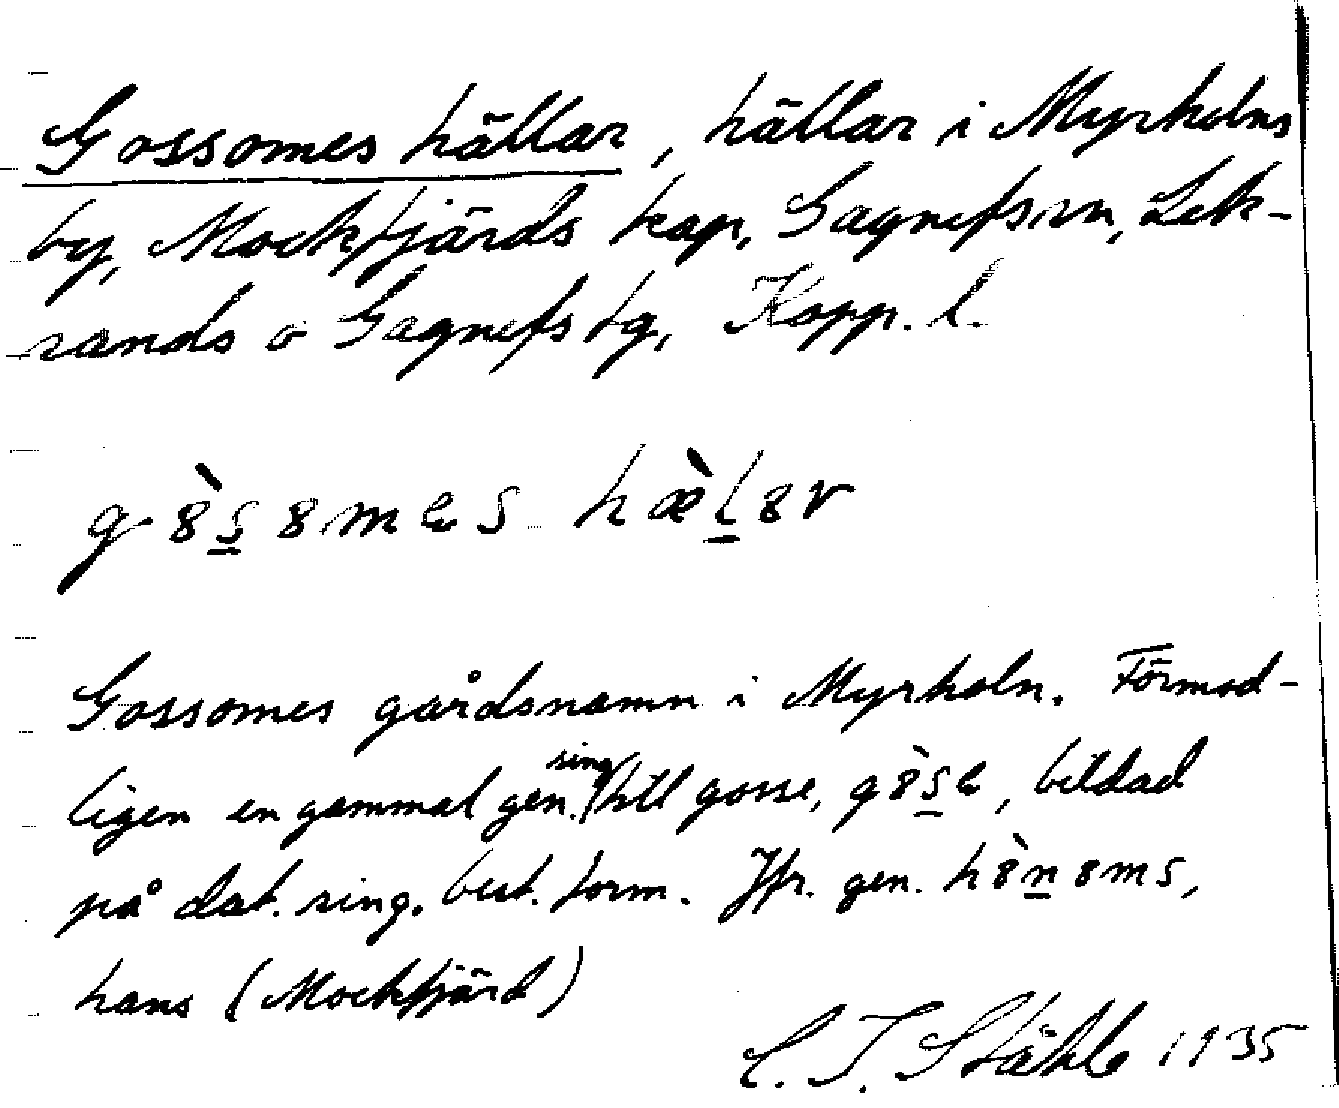 Gossomes hällar, hällar i Myrholns
by, Mockfjärds kap, Gagnefs sn, Lek-
sands o Gagnefs tg, Kopp. l.
g8̀s̲8mes hæ̀l̲8r
Gossomes gårdsnamn i Myrholn. Förmod-
ligen en gammal gen. sing till gosse, g8̀s̲e, bildad
på dat. sing. best. form. Jfr. gen. h8̀n̲8ms,
hans (Mockfjärd)
C. I. Ståhle 1935